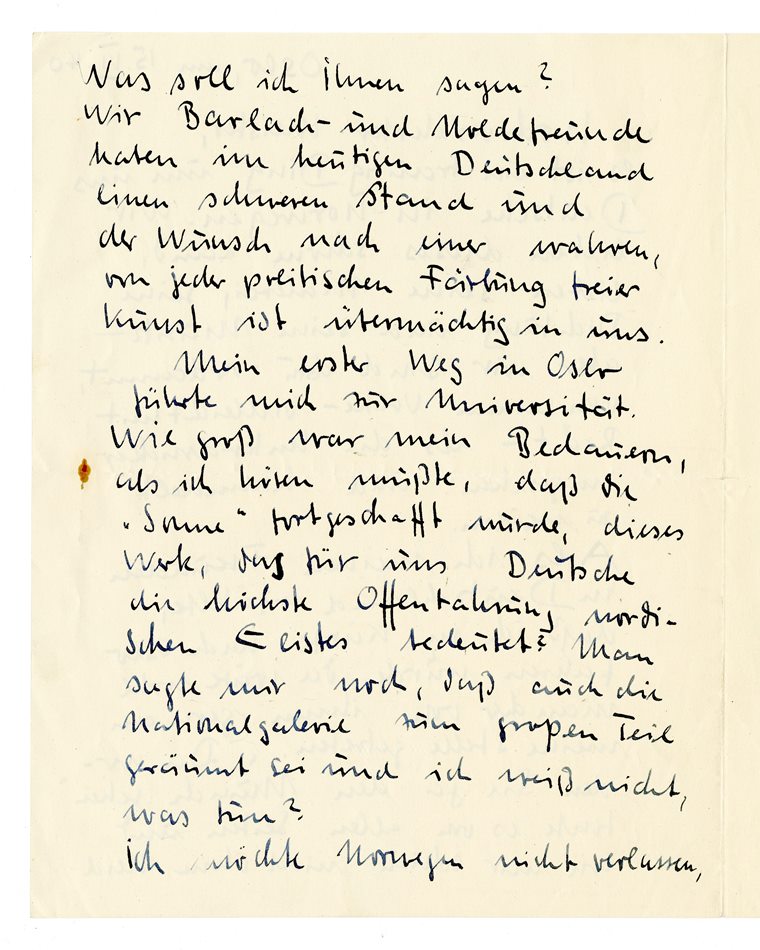 Was soll ich Ihnen sagen?
Wir Barlach- und Noldefreunde
haben im heutigen Deutschland
einen schweren Stand und
der Wunsch nach einer wahren,
von jeder politischen Färbung freier
Kunst ist übermächtig in uns.
Mein erster Weg in Oslo
führte mich zur Universität.
Wie groß war mein Bedauern,
als ich hören mußte, daß die
„Sonne" fortgeschafft wurde, dieses
Werk, das für uns Deutsche
die höchste Offenbahrung nordi-
schen Geistes bedeutet? Man
sagte mir noch, daß auch die
Nationalgalerie zum großen Teil
geräumt sei und ich weiß nicht,
was tun?
Ich möchte Norwegen nicht verlassen,